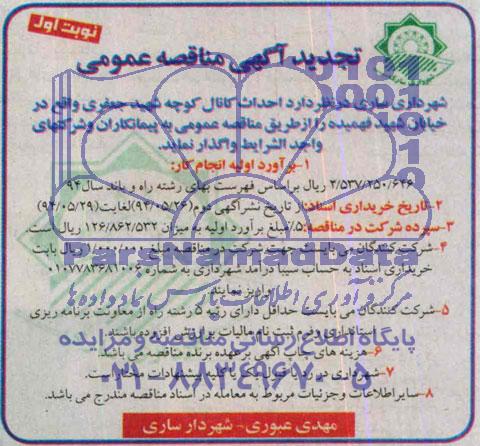 نوبت اول
تجدید آگهی مناقصه عمومی
شهرداری ساری در نظر دارد احداث کانال کوچه شهید جعفری واقع در
خیابان شهید فهمیده را از طریق مناقصه عمومی به پیمانکاران و شرکتهای
واجد الشرایط واگذار نماید.
۱-برآورد اولیه انجام کار:
۲/۵۳۷/۲۵۰/۶۴۶ ریال براساس فهرست بهای رشته راه و باند سال ۹۴
۲-تاریخ خریداری اسناد: از تاریخ نشر آگهی دوم (۹۴/۰۵/۲۶) لغایت (۹۴/۰۵/۲۹)
۳-سپرده شرکت در مناقصه: ۵٪ مبلغ برآورد اولیه به میزان ۱۲۶/۸۶۲/۵۳۲ ریال است.
۴-شرکت کنندگان می بایست جهت شرکت در مناقصه مبلغ ۱/۰۰۰/۰۰۰ ریال بابت
خریداری اسناد به حساب سیبا درآمد شهرداری به شماره ۰۱۰۷۷۸۳۶۸۱۰۰۶
واریز نمایند.
۵-شرکت کنندگان می بایست حداقل دارای رتبه ۵ رشته راه از معاونت برنامه ریزی
استانداری و فرم ثبت نام مالیات بر ارزش افزوده باشند.
۶-هزینه های چاپ آگهی بر عهده برنده مناقصه می باشد.
۷-شهرداری در رد یا قبول یک یا کلیه پیشنهادات مختار است.
۸-سایر اطلاعات و جزئیات مربوط به معامله در اسناد مناقصه مندرج می باشد.
مهدی عبوری - شهردار ساری
ParsNamadData
مرکز فرآوری اطلاعات پارس نماد داده ها
پایگاه اطلاع رسانی مناقصه و مزایده
۰۲۱-۸۸۳۴۹۶۷۰-۵